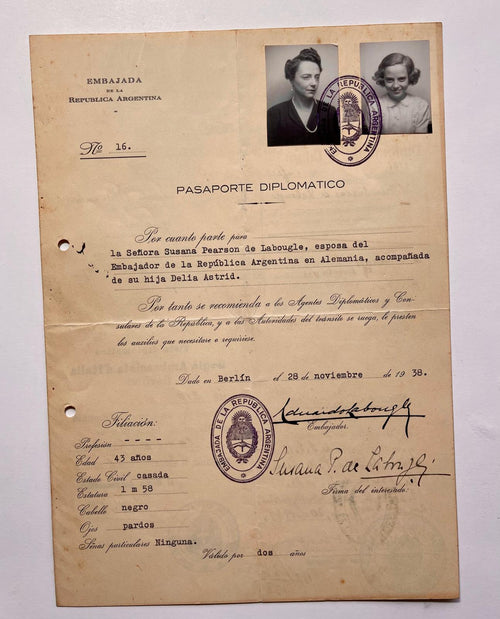 EMBAJADA
DE LA
REPUBLICA ARGENTINA
Nº 16.
EMBAJADA DE LA REPUBLICA ARGENTINA
PASAPORTE DIPLOMATICO
Por cuanto parte para
la Señora Susana Pearson de Labougle, esposa del
Embajador de la República Argentina en Alemania, acompañada
de su hija Delia Astrid.
Por tanto se recomienda a los Agentes Diplomáticos y Con-
sulares de la República, y a las Autoridades del tránsito se ruega, le presten
los auxilios que necesitare o requiriese.
Dado en Berlín el 28 de noviembre de 1938.
EMBAJADA DE LA REPUBLICA ARGENTINA
Eduardo Labougle
Embajador.
Susana P. de Labougle
Firma del interesado:
Filiación:
Profesión ----
Edad 43 años
Estado Civil casada
Estatura 1 m 58
Cabello negro
Ojos pardos
Señas particulares Ninguna.
Válido por dos años